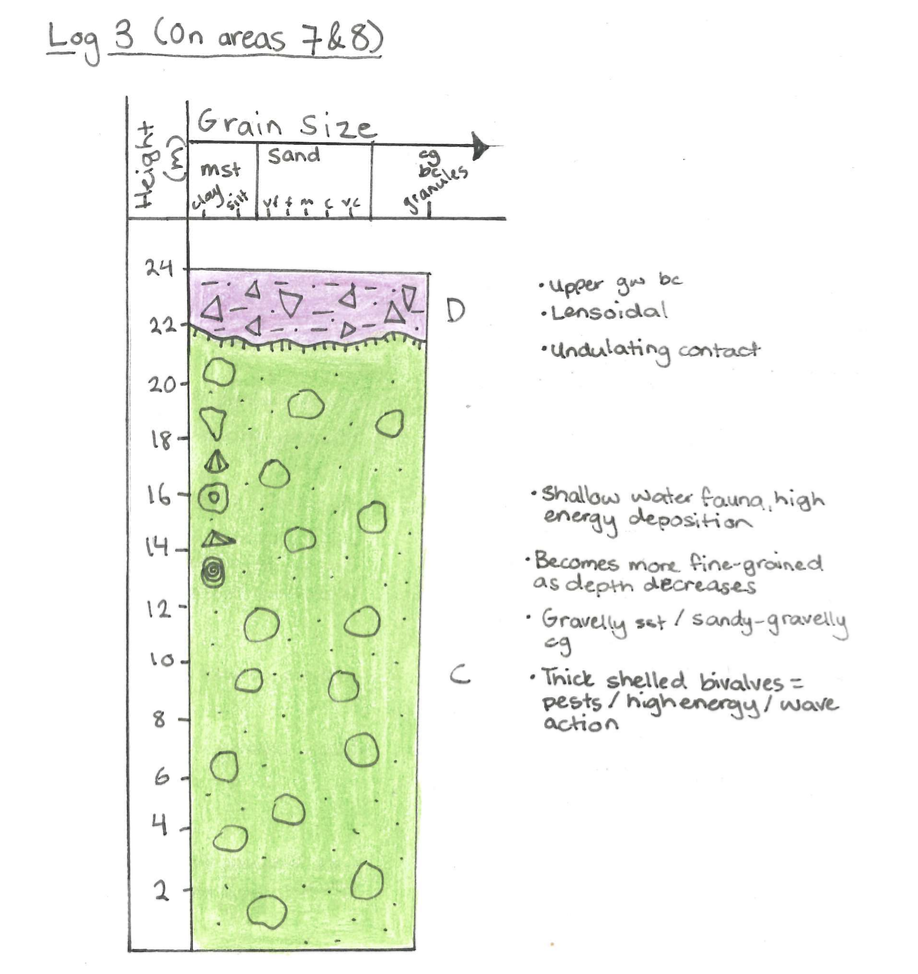 Log 3 (On areas 7&8)
Height (m)
Grain Size
mst
clay silt
Sand
vf f m c vc
cg
bc
granules
24
22
20
18
16
14
12
10
8
6
4
2
D
C
• Upper gw bc
• Lensoidal
• Undulating contact
• Shallow water fauna, high
energy deposition
• Becomes more fine-grained
as depth decreases
• Gravelly sst / sandy-gravelly
cg
• Thick shelled bivalves =
pests / high energy / wave
action